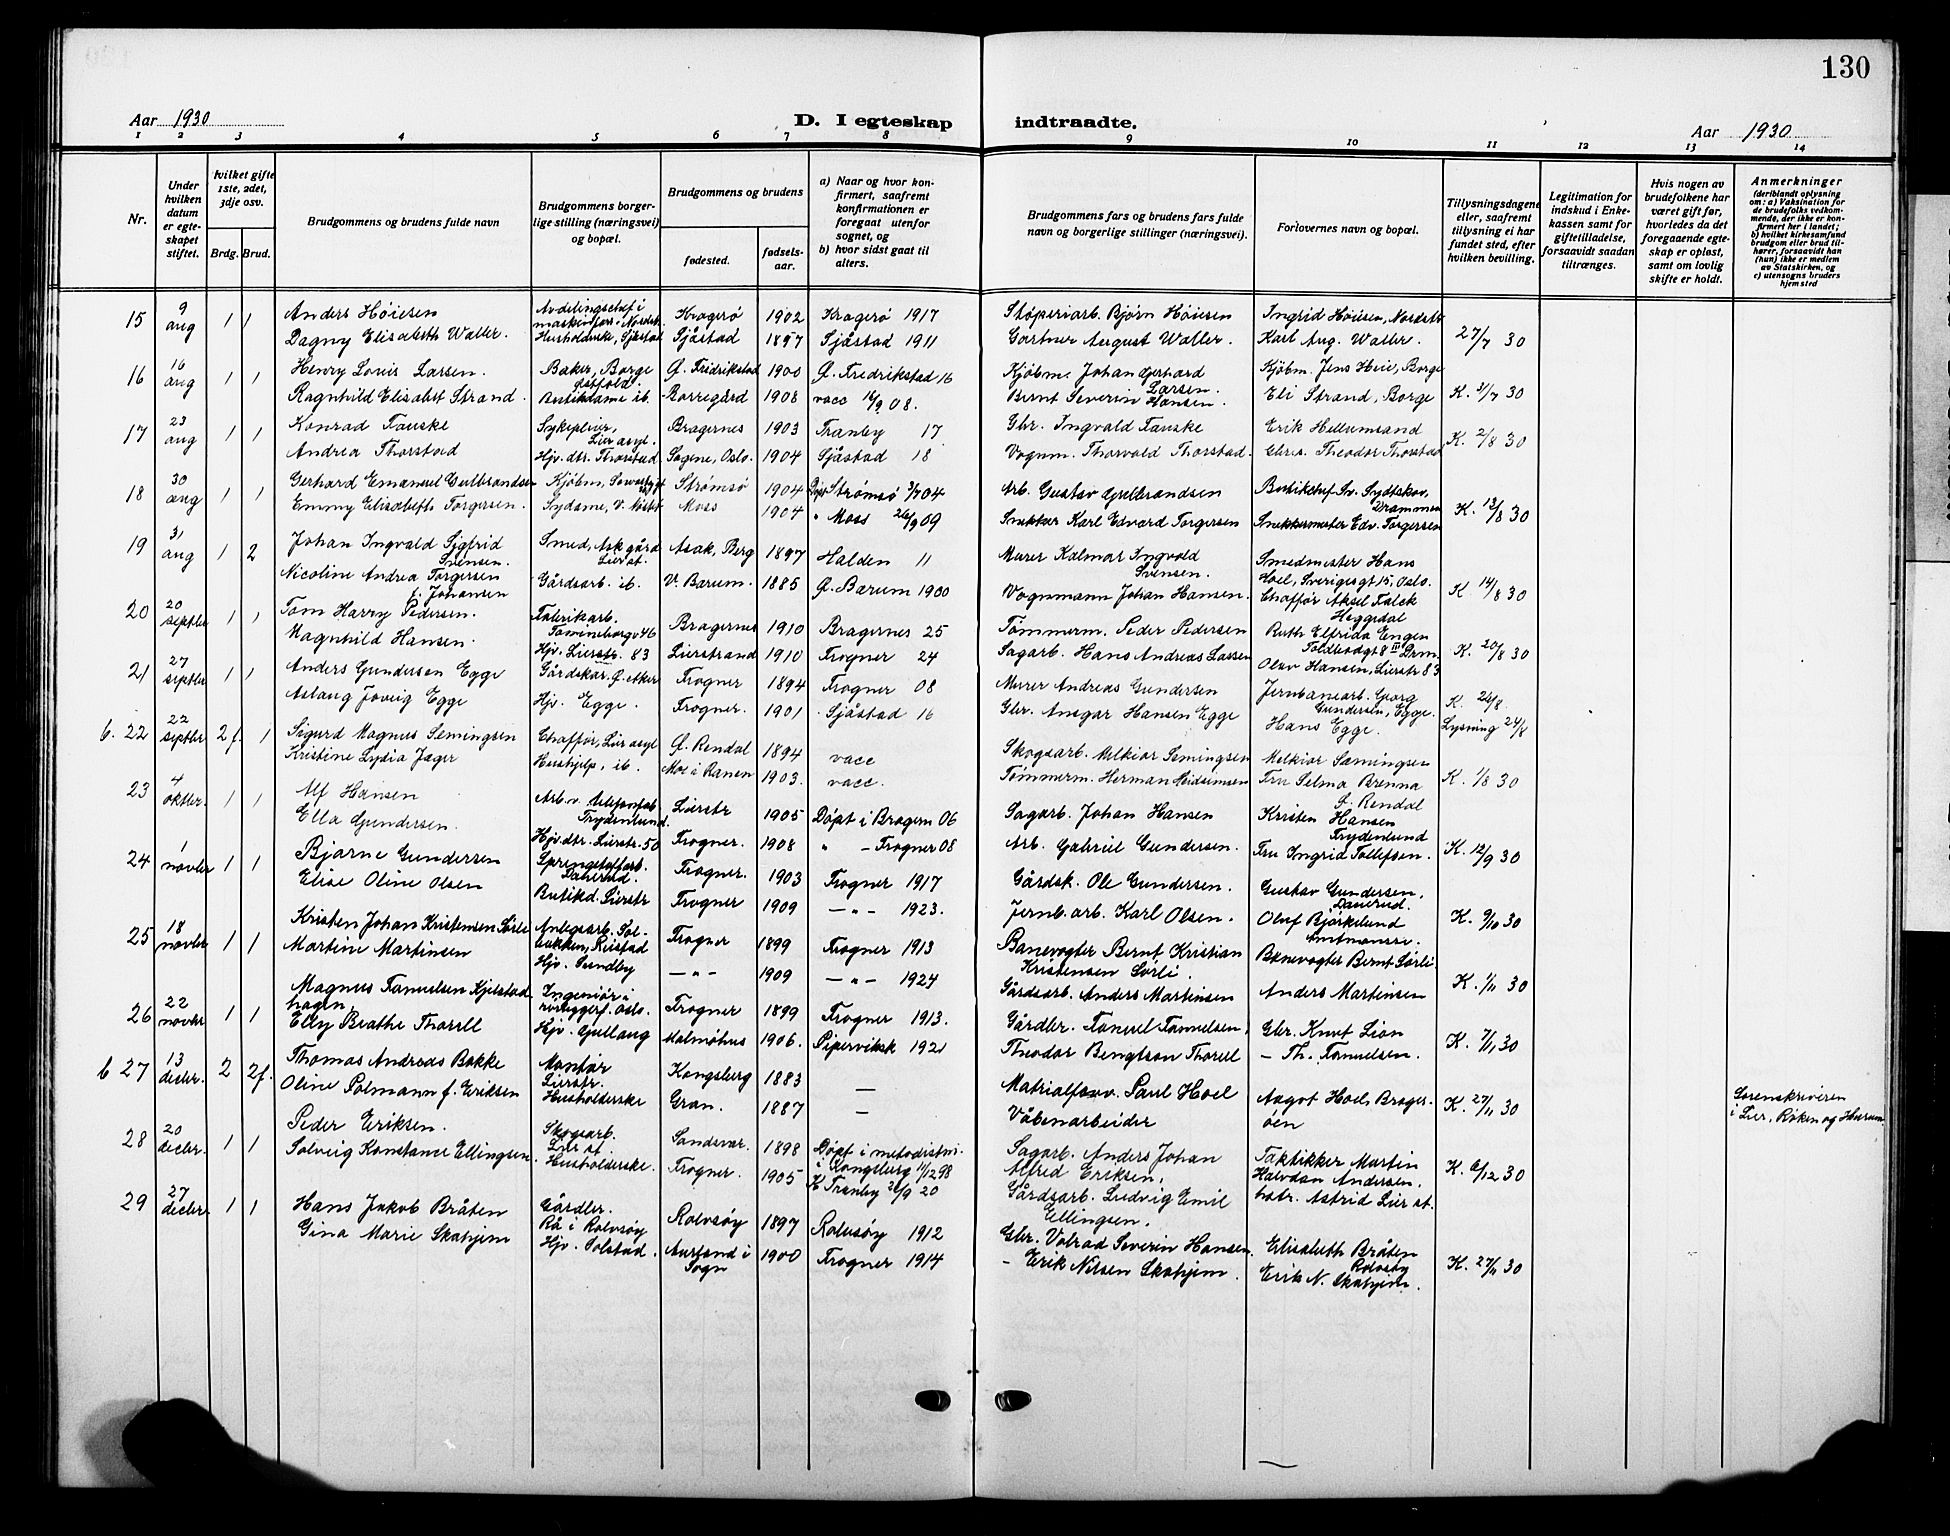 130
Aar 1930
D. I egteskap indtraadte.
Aar 1930
1 2 3 4 5 6 7 8 9 10 11 12 13 14
Nr.
Under hvilken datum er egteskapet stiftet.
hvilket gifte 1ste, 2det, 3dje osv.
Brdg. Brud.
Brudgommens og brudens fulde navn
Brudgommens borgerlige stilling (næringsvei) og bopæl.
Brudgommens og brudens
fødested.
fødselsaar.
a) Naar og hvor konfirmert, saafremt konfirmationen er foregaat utenfor sognet, og
b) hvor sidst gaat til alters.
Brudgommens fars og brudens fars fulde navn og borgerlige stillinger (næringsvei).
Forlovernes navn og bopæl.
Tillysningsdagene eller, saafremt tillysning ei har fundet sted, efter hvilken bevilling.
Legitimation for indskud i Enkekassen samt for giftetilladelse, forsaavidt saadan tiltrænges.
Hvis nogen av brudefolkene har været gift før, hvorledes da det foregaaende egteskap er opløst, samt om lovlig skifte er holdt.
Anmerkninger
(deriblandt oplysning om: a) Vaksination for de brudefolks vedkommende, der ikke er konfirmert her i landet; b) hvilket kirkesamfund brudgom eller brud tilhører, forsaavidt han (hun) ikke er medlem av Statskirken, og c) utensogns bruders hjemsted
15 9 aug 1 1 Anders Höiesen Avdelingschef i Kragerø 1902 Kragerø 1917 Støperiarb. Bjørn Höiesen Ingrid Höiesen, Nordstr. 27/7 30
Dagny Elisabeth Waller. Husholderske, Sjåstad Sjåstad 1897 Sjåstad 1911 Gartner August Waller. Karl Aug. Waller.
16 16 aug 1 1 Henry Louis Larsen. Baker, Borge Østfold G. Fredrikstad 1900 G. Fredrikstad 16 Kjøbm. Johan Gerhard Larsen. Kjøbm. Jens Heie, Borge K. 31/7 30
Ragnhild Elisabet Strand. Butikdame ib. Borregård 1908 vacc 14/9 08. Bernt Severin Hansen. Eli Strand, Borge
17 23 aug 1 1 Konrad Fauske Sykepleier, Lier asyl. Bragernes 1903 Tranby 17 Gbr. Ingvald Fauske Erik Hellumsand K. 2/8 30
Andrea Thorstad Hjv. dtr. Thorstad Sagene, Oslo. 1904 Sjåstad 18 Vognm. Thorvald Thorstad. Gbr. Theodor Thorstad
18 30 aug 1 1 Gerhard Emanuel Gulbrandsen Kjøbm. Strømsø 1904 Døpt Strømsø 3/7 04 Arb. Gustav Gulbrandsen Butikchef Sv. Sydtskov, Drammen K. 13/8 30
Emmy Elisabeth Torgersen. Sydame, V. Moss 1904 " Moss 26/9 09 Snekker Karl Edvard Torgersen Snekkermester Edv. Torgersen
19 31 aug 1 2 Johan Ingvald Sigfrid Svensen. Smed, Askgård Lier st. Asak, Berg 1897 Halden 11 Murer Kalmar Ingvold Svensen. Smedmester Hans Hoel, Sverigesgt 15, Oslo. K. 14/8 30
Nicoline Andrea Torgersen f. Johansen Gårdsarb. ib. V. Bærum. 1885 G. Bærum 1900 Vognmann Johan Hansen. Chaffør Aksel Falck Heggedal
20 20 septbr 1 1 Tom Harry Pedersen. Fabrikarb. Bragernes 1910 Bragernes 25 Tømmerm. Peder Pedersen Ruth Elfrida Engen Toldbodgt 8 III Drm. K. 20/8 30
Magnhild Hansen. Hjv. Lierstr. 83 Lierstrand 1910 Frogner 24 Sagarb. Hans Andreas Lassen Olav Hansen, Lierstr 83
21 27 septbr 1 1 Anders Gundersen Egge Gårdskar. Ø. Aker Frogner 1894 Frogner 08 Murer Andreas Gundersen Jernbanearb. Georg Gundersen, Egge. K. 26/8
Aslaug Joveig Egge Hjv. Egge. Frogner. 1901 Sjåstad 16 Gbr. Ansgar Hansen Egge Hans Egge. Lysning 24/8
b. 22 22 septbr 2f. 1 Sigurd Magnus Semingsen Chaffør, Lier asyl Ø. Rendal 1894 vacc Skogsarb. Melkior Semingsen Melkior Semingsen K. 1/8 30
Kristine Lydia Jæger Hushjelp, ib. Mo i Ranen 1903. vacc. Tømmerm. Herman Fru Selma Brenna Ø. Rendal
23 4 oktbr. 1 1 Alf Hansen Arb. v. Frydenlund. Lierstr 1905 Døpt i Bragern 06 Sagarb. Johan Hansen Kristen Hansen Frydenlund K. 12/9 30
Ella Gundersen. Hjv. dtr. Lierstr. 50 Frogner. 1908 " - Frogner 08 Arb. Gabriel Gundersen. Fru Ingrid Tollefsen.
24 1 novbr 1 1 Bjarne Gundersen Sprengstoffarb. Danerud. Frogner. 1903 Frogner 1917 Gårdsk. Ole Gundersen. Gustav Gundersen, Danerud. K. 9/10 30
Elise Oline Olsen Butikd. Lierstr Frogner 1909 - " - 1923. Jernb. arb. Karl Olsen. Olaf Bjørkelund
25 18 novbr 1 1 Kristen Johan Kristensen Sørlie Anlegsarb. Solbakken, Reistad Frogner 1899 Frogner 1913 Banevogter Bernt Kristian Kristensen Sørli. Banevogter Bernt Sørli. K. 1/11 30
Martine Martinsen Hjv. Sundby - " - 1909 - " - 1924 Gårdsarb. Anders Martinsen Anders Martinsen
26 22 novbr 1 1 Magnus Fanuelsen Kjelstad hagen, Ingeniør i Oslo. Frogner 1899 Frogner 1913. Gårdbr. Fanuel Fanuelsen, Gbr. Knut Lian K. 7/11 30
Elly Beathe Thorell Hjv. Gullaug Malmøhus 1906. Pipervikak 1921 Theodor Bengtson Thorell - Th. Fanuelsen.
b 27 13 decbr. 2 2f. Thomas Andreas Bakke Montør Lierstr. Kongsberg 1883 — Matrialforv. Paul Hoel Aagot Hoel, Bragerøen K. 27/11 30 Sorenskriveren i Lier, Røken og Hurum
Oline Polmann f. Eriksen Husholderske Gran. 1887 — Våbenarbeider
28 20 decbr. 1 1 Peder Eriksen. Skogsarb. Lier st. Sandsvær. 1898 Døpt i metodistm. i Kongsberg 11/12 98 Sagarb. Anders Johan Alfred Eriksen, Taktikker Martin Halvdan Andersen. K. 6/12 30
Solveig Konstance Ellingsen Husholderske. Frogner. 1905 K Tranby 26/9 20 Gårdsarb. Ludvig Emil Ellingsen. Astrid Lier st.
29 27 decbr 1 1 Hans Jakob Bråten Gårdbr. Rå i Rolvsøy Rolvsøy 1897 Rolvsøy 1912 Gbr. Valrad Severin Hansen. Elisabeth Bråten Rolvsøy K. 27/11 30
Gina Marie Skahjem Hjv. Solstad. Aurland i Sogn 1900 Frogner 1914 - Erik Nilsen Skahjem. Erik N. Skahjem.